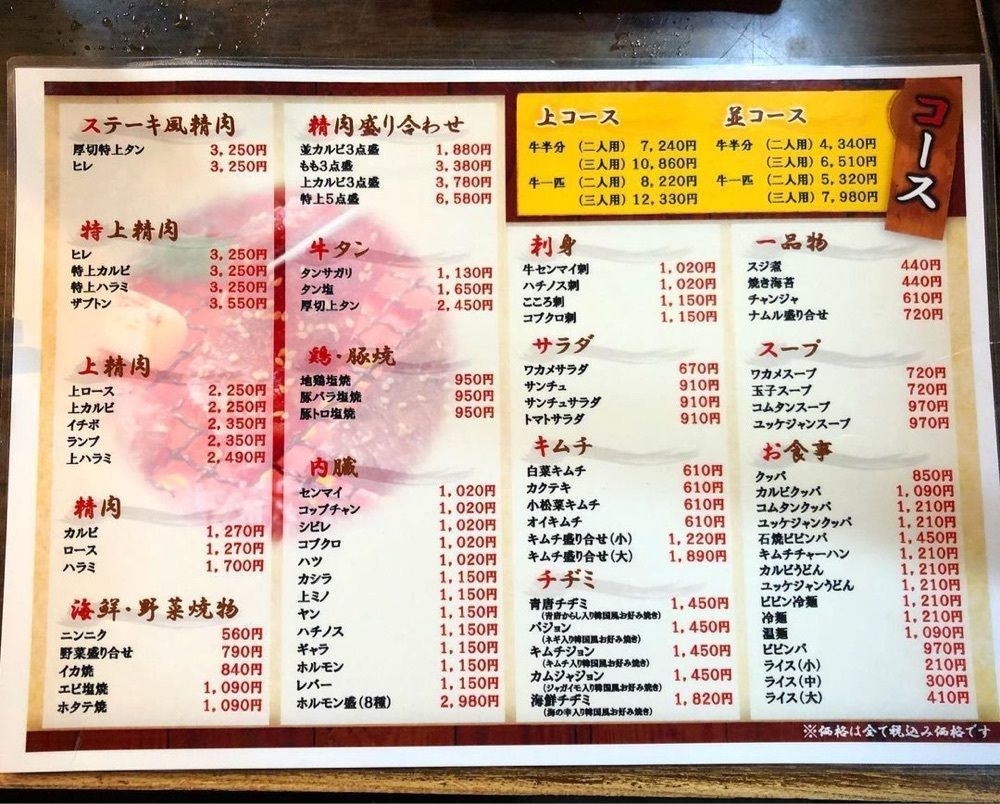 ステーキ風精肉
厚切特上タン 3,250円
ヒレ 3,250円
特上精肉
ヒレ 3,250円
特上カルビ 3,250円
特上ハラミ 3,250円
ザブトン 3,550円
上精肉
上ロース 2,250円
上カルビ 2,250円
イチボ 2,350円
ランプ 2,350円
上ハラミ 2,490円
精肉
カルビ 1,270円
ロース 1,270円
ハラミ 1,700円
海鮮・野菜焼物
ニンニク 560円
野菜盛り合せ 790円
イカ焼 840円
エビ塩焼 1,090円
ホタテ焼 1,090円
精肉盛り合わせ
並カルビ3点盛 1,880円
もも3点盛 3,380円
上カルビ3点盛 3,780円
特上5点盛 6,580円
牛タン
タンサガリ 1,130円
タン塩 1,650円
厚切上タン 2,450円
鶏・豚焼
地鶏塩焼 950円
豚バラ塩焼 950円
豚トロ塩焼 950円
内臓
センマイ 1,020円
コップチャン 1,020円
シビレ 1,020円
コブクロ 1,020円
ハツ 1,020円
カシラ 1,150円
上ミノ 1,150円
ヤン 1,150円
ハチノス 1,150円
ギャラ 1,150円
ホルモン 1,150円
レバー 1,150円
ホルモン盛(8種) 2,980円
コース
上コース
牛半分 (二人用) 7,240円
(三人用) 10,860円
牛一匹 (二人用) 8,220円
(三人用) 12,330円
並コース
牛半分 (二人用) 4,340円
(三人用) 6,510円
牛一匹 (二人用) 5,320円
(三人用) 7,980円
刺身
牛センマイ刺 1,020円
ハチノス刺 1,020円
こころ刺 1,150円
コブクロ刺 1,150円
サラダ
ワカメサラダ 670円
サンチュ 910円
サンチュサラダ 910円
トマトサラダ 910円
キムチ
白菜キムチ 610円
カクテキ 610円
小松菜キムチ 610円
オイキムチ 610円
キムチ盛り合せ(小) 1,220円
キムチ盛り合せ(大) 1,890円
チヂミ
青唐チヂミ 1,450円
(青唐からし入り韓国風お好み焼き)
パジョン 1,450円
(ネギ入り韓国風お好み焼き)
キムチジョン 1,450円
(キムチ入り韓国風お好み焼き)
カムジャジョン 1,450円
(ジャガイモ入り韓国風お好み焼き)
海鮮チヂミ 1,820円
(海の幸入り韓国風お好み焼き)
一品物
スジ煮 440円
焼き海苔 440円
チャンジャ 610円
ナムル盛り合せ 720円
スープ
ワカメスープ 720円
玉子スープ 720円
コムタンスープ 970円
ユッケジャンスープ 970円
お食事
クッパ 850円
カルビクッパ 1,090円
コムタンクッパ 1,210円
ユッケジャンクッパ 1,210円
石焼ビビンバ 1,450円
キムチチャーハン 1,210円
カルビうどん 1,210円
ユッケジャンうどん 1,210円
ビビン冷麺 1,210円
冷麺 1,210円
温麺 1,090円
ビビンバ 970円
ライス(小) 210円
ライス(中) 300円
ライス(大) 410円
※価格は全て税込み価格です